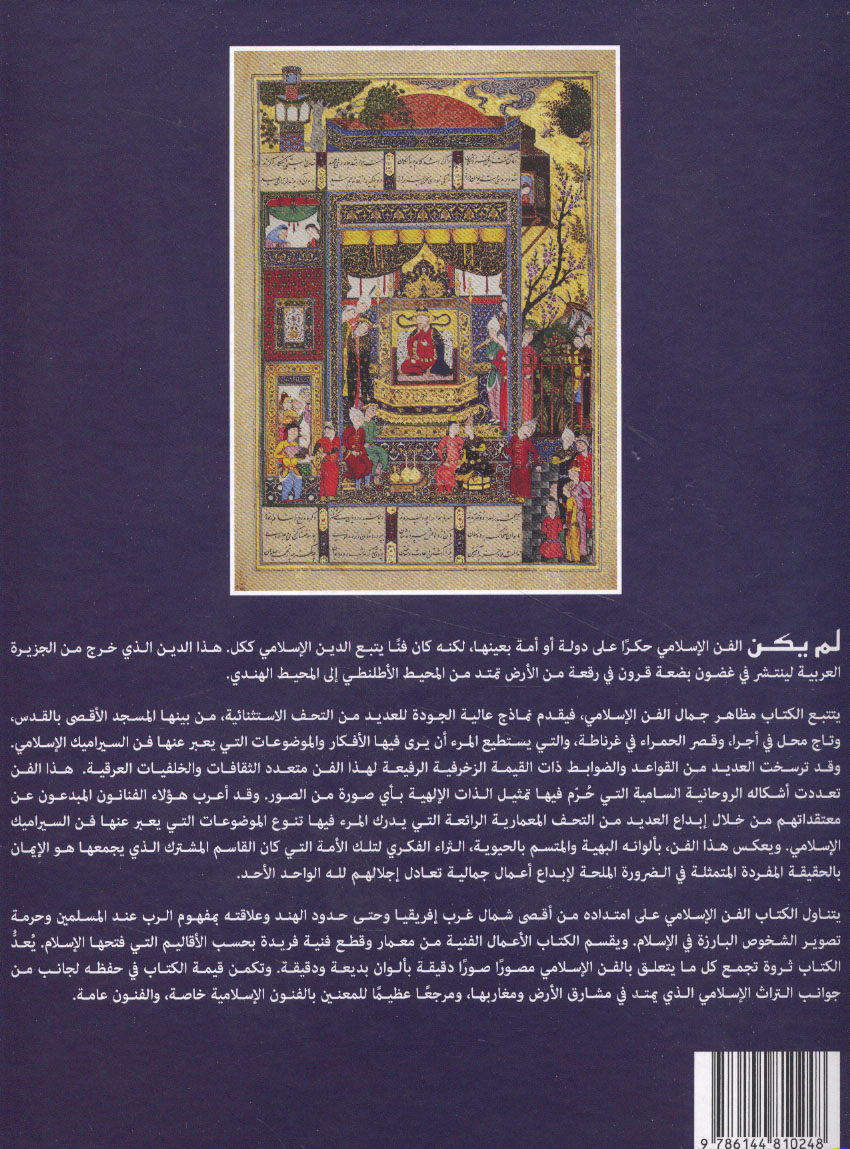 لم يكن الفن الإسلامي حكرًا على دولة أو أمة بعينها، لكنه كان فنًا يتبع الدين الإسلامي ككل. هذا الدين الذي خرج من الجزيرة
العربية لينتشر في غضون بضعة قرون في رقعة من الأرض تمتد من المحيط الأطلنطي إلى المحيط الهندي.
يتتبع الكتاب مظاهر جمال الفن الإسلامي، فيقدم نماذج عالية الجودة للعديد من التحف الاستثنائية، من بينها المسجد الأقصى بالقدس،
وتاج محل في أجرا، وقصر الحمراء في غرناطة، والتي يستطيع المرء أن يرى فيها الأفكار والموضوعات التي يعبر عنها فن السيراميك الإسلامي.
وقد ترسخت العديد من القواعد والضوابط ذات القيمة الزخرفية الرفيعة لهذا الفن متعدد الثقافات والخلفيات العرقية. هذا الفن
تعددت أشكاله الروحانية السامية التي حُرّم فيها تمثيل الذات الإلهية بأي صورة من الصور. وقد أعرب هؤلاء الفنانون المبدعون عن
معتقداتهم من خلال إبداع العديد من التحف المعمارية الرائعة التي يدرك المرء فيها تنوع الموضوعات التي يعبر عنها فن السيراميك
الإسلامي. ويعكس هذا الفن، بألوانه البهية والمتسم بالحيوية، الثراء الفكري لتلك الأمة التي كان القاسم المشترك الذي يجمعها هو الإيمان
بالحقيقة المفردة المتمثلة في الضرورة الملحة لإبداع أعمال جمالية تعادل إجلالهم لله الواحد الأحد.
يتناول الكتاب الفن الإسلامي على امتداده من أقصى شمال غرب إفريقيا وحتى حدود الهند وعلاقته بمفهوم الرب عند المسلمين وحرمة
تصوير الشخوص البارزة في الإسلام. ويقسم الكتاب الأعمال الفنية من معمار وقطع فنية فريدة بحسب الأقاليم التي فتحها الإسلام. يُعدُّ
الكتاب ثروة تجمع كل ما يتعلق بالفن الإسلامي مصورًا صورًا دقيقة بألوان بديعة ودقيقة. وتكمن قيمة الكتاب في حفظه لجانب من
جوانب التراث الإسلامي الذي يمتد في مشارق الأرض ومغاربها، ومرجعًا عظيمًا للمعنين بالفنون الإسلامية خاصة، والفنون عامة.
9 786144 810248